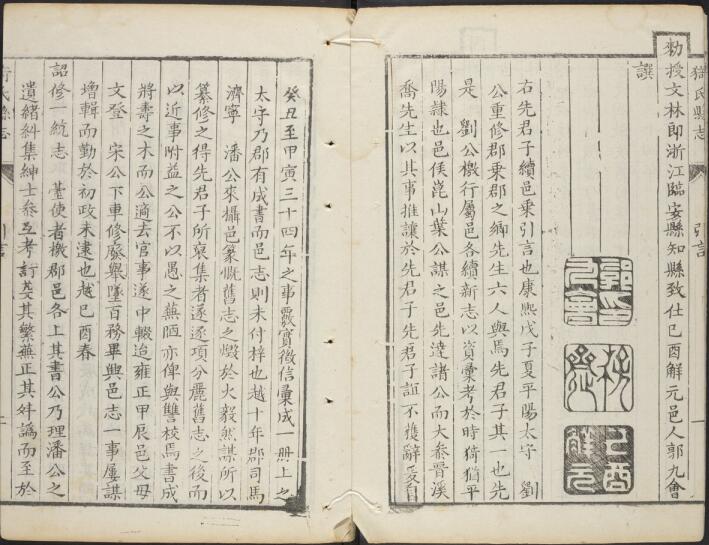 猗氏縣志
引言
一
勑授文林郎浙江臨安縣知縣致仕己酉解元邑人郭九會
譔
己酉
解元
右先君子續邑乗引言也康熙戊子夏平陽太守 劉
公重修郡乗郡之鄉先生六人與焉先君子其一也先
是 劉公檄行屬邑各續新志以資彙考於時猗猶平
陽隷也邑矦崑山葉公謀之邑先達諸公而大叅晉溪
喬先生以其事推讓於先君子先君子誼不獲辭爰自
癸丑至甲寅三十四年之事覈實徴信彙成一冊上之
太守乃郡有成書而邑志則未付梓也越十年郡司馬
濟寧 潘公來攝邑篆慨舊志之燬於火毅然謀所以
纂修之得先君子所裒集者遂逐項分麗舊志之後而
以近事附益之公不以愚之蕪陋亦俾與讐校焉書成
將壽之木而公適去官事遂中輟迨雍正甲辰邑父母
文登 宋公下車修廢舉墜百務畢興邑志一事屢謀
增輯而勤於初政未逮也越己酉春
詔修一統志 臺使者檄郡邑各上其書公乃理潘公之
遺緒糾集紳士叅互考訂芟其繁蕪正其舛譌而至於
猗氏縣志
引言